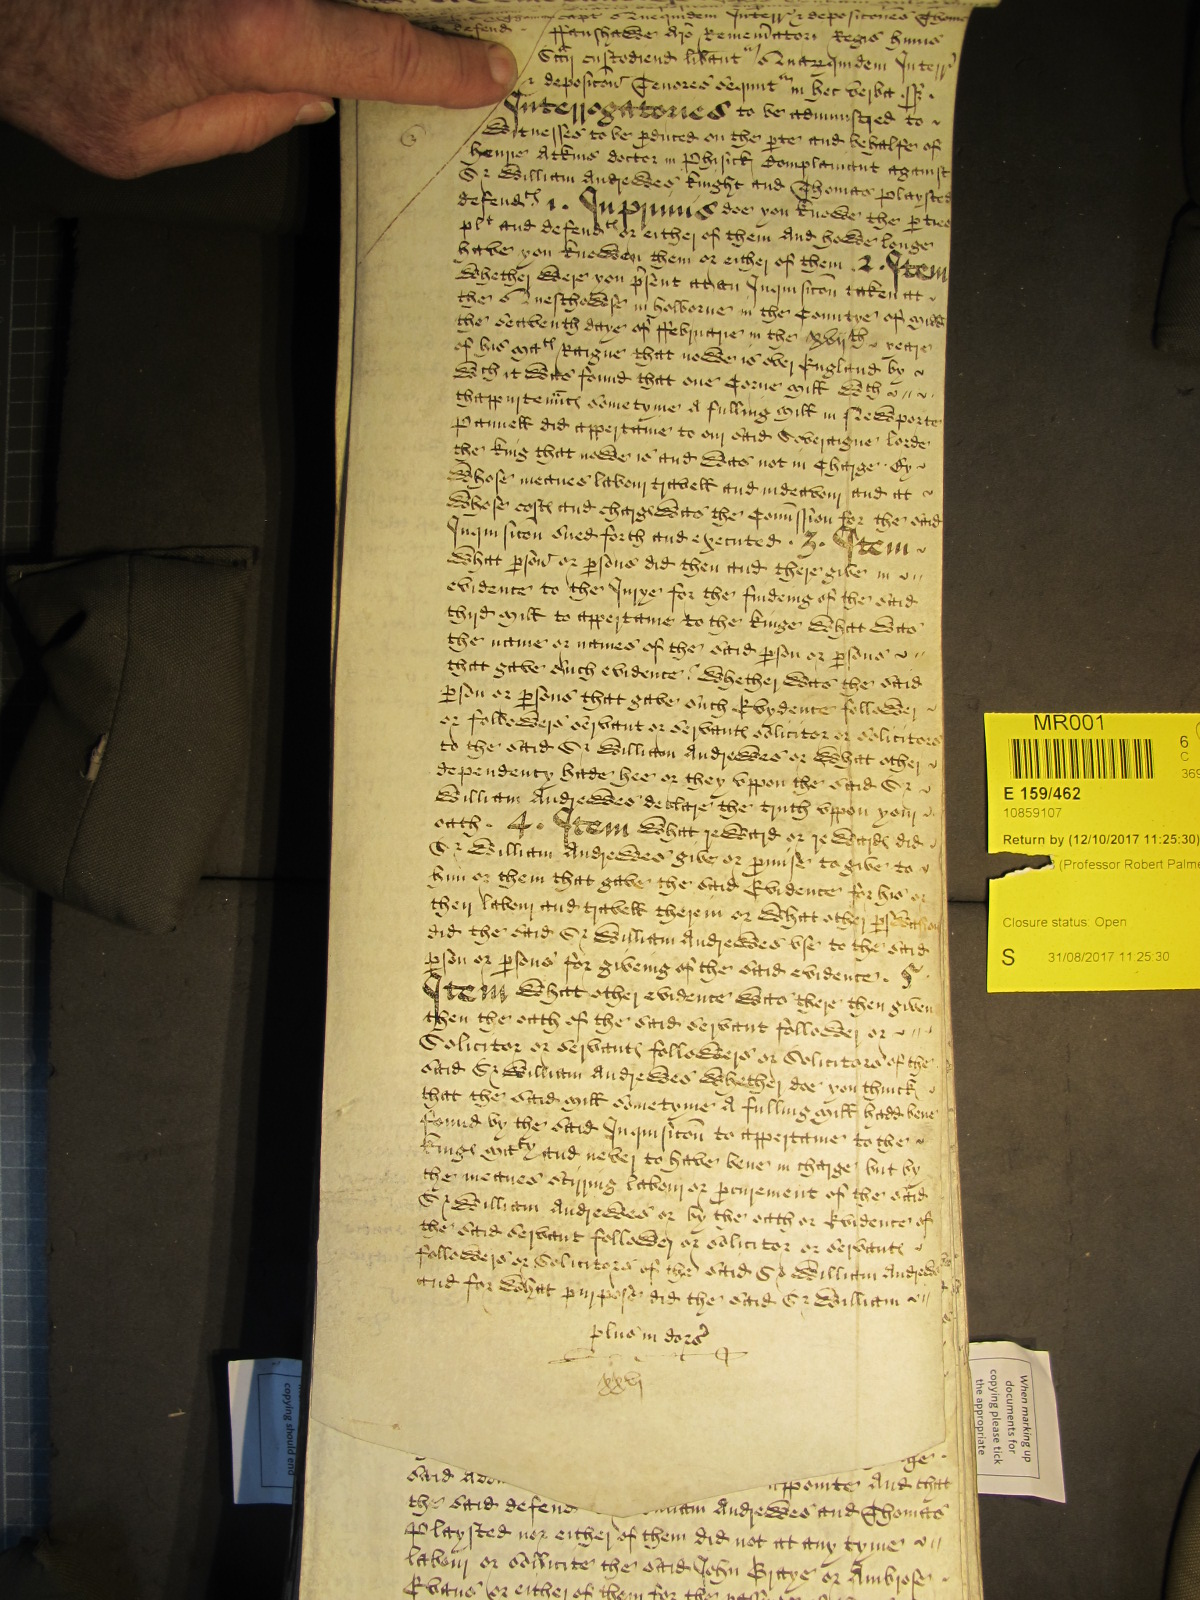 capt Quequidem Interr & depositiones Thome
defend ffanshawe Aro Rememorator Regis huius
Scij custodiend libant Quarumquidem Interr
deposicon Tenores sequunt in hec verba ss
Interrogatories to be administred to
Witnesses to be pduced on the pte and behalfe of
henrie Atkins doctor in Phisick Complainant against
Sr William Andrewes knight and Thomas Playsted
defendts 1. Inprimis doe you knowe the pties
plt and defendts or either of them And howe longe
have you knowen them or either of them 2. Item
Whether were you psent at an Inquisicon taken at
the Questhowse in holborne in the Countye of midd
the seaventh daye of ffebruarie in the xviith yeare
of his mats Raigne that nowe is over England by
wch it was found that one Corne mill wth
thappurtennces sometyme A fulling mill in Newporte
Pannell did appertaine to our said Soveraigne lorde
the king that nowe is and was not in Charge By
whose meanes labour travell and indeavour and at
whose costs and charge was the Comission for the said
Inquisicon sued forth and executed . 3. Item
What pson or psons did then and there give in
evidence to the Jurye for the findeing of the said
third mill to appertaine to the kinge What was
the name or names of the said pson or psons
that gave such evidence? Whether was the said
pson or psons that gave such Evydence follower
or followers servant or servants solicitor or solicitors
to the said Sr William Andrewes or what other
dependency hade hee or they uppon the said Sr
William Andrewes declare the truth uppon your
oath . 4. Item What reward or rewards did
Sr William Andrewes give or pmise to give to
him or them that gave the said Evidence for his or
their labour and travell therein or what other pswasion
did the said Sr William Andrewes use to the said
pson or psons for giveing of the said evidence . 5.
Item What other evidence was there then given
then the oath of the said servant follower or
Solicitor or servants followers or Solicitors of the
said Sr William Andrewes Whether doe you thinck
that the said mill sometyme A fulling mill hadd bene
found by the said Inquisicon to appertaine to the
kings maty and never to have bene in charge but by
the meanes stirring labour or pcurement of the said
Sr William Andrewes or by the oath or Evidence of
the said servant follower or solicitor or servants
followers or Solicitors of the said Sr William Andrewes
and for what purpose did the said Sr William
plus in dors
xxvj
said
appointe And that
the said defend William Andrewes and Thomas
Playsted nor either of them did not at any tyme
labour or sollicite the said John Graye or Ambrose
Evans or either of them for the
MR001
6
C
369
E 159/462
10859107
Return by (12/10/2017 11:25:30)
(Professor Robert Palme
Closure status: Open
S 31/08/2017 11:25:30
copying should end
When marking up
documents for
copying please tick
the appropriate